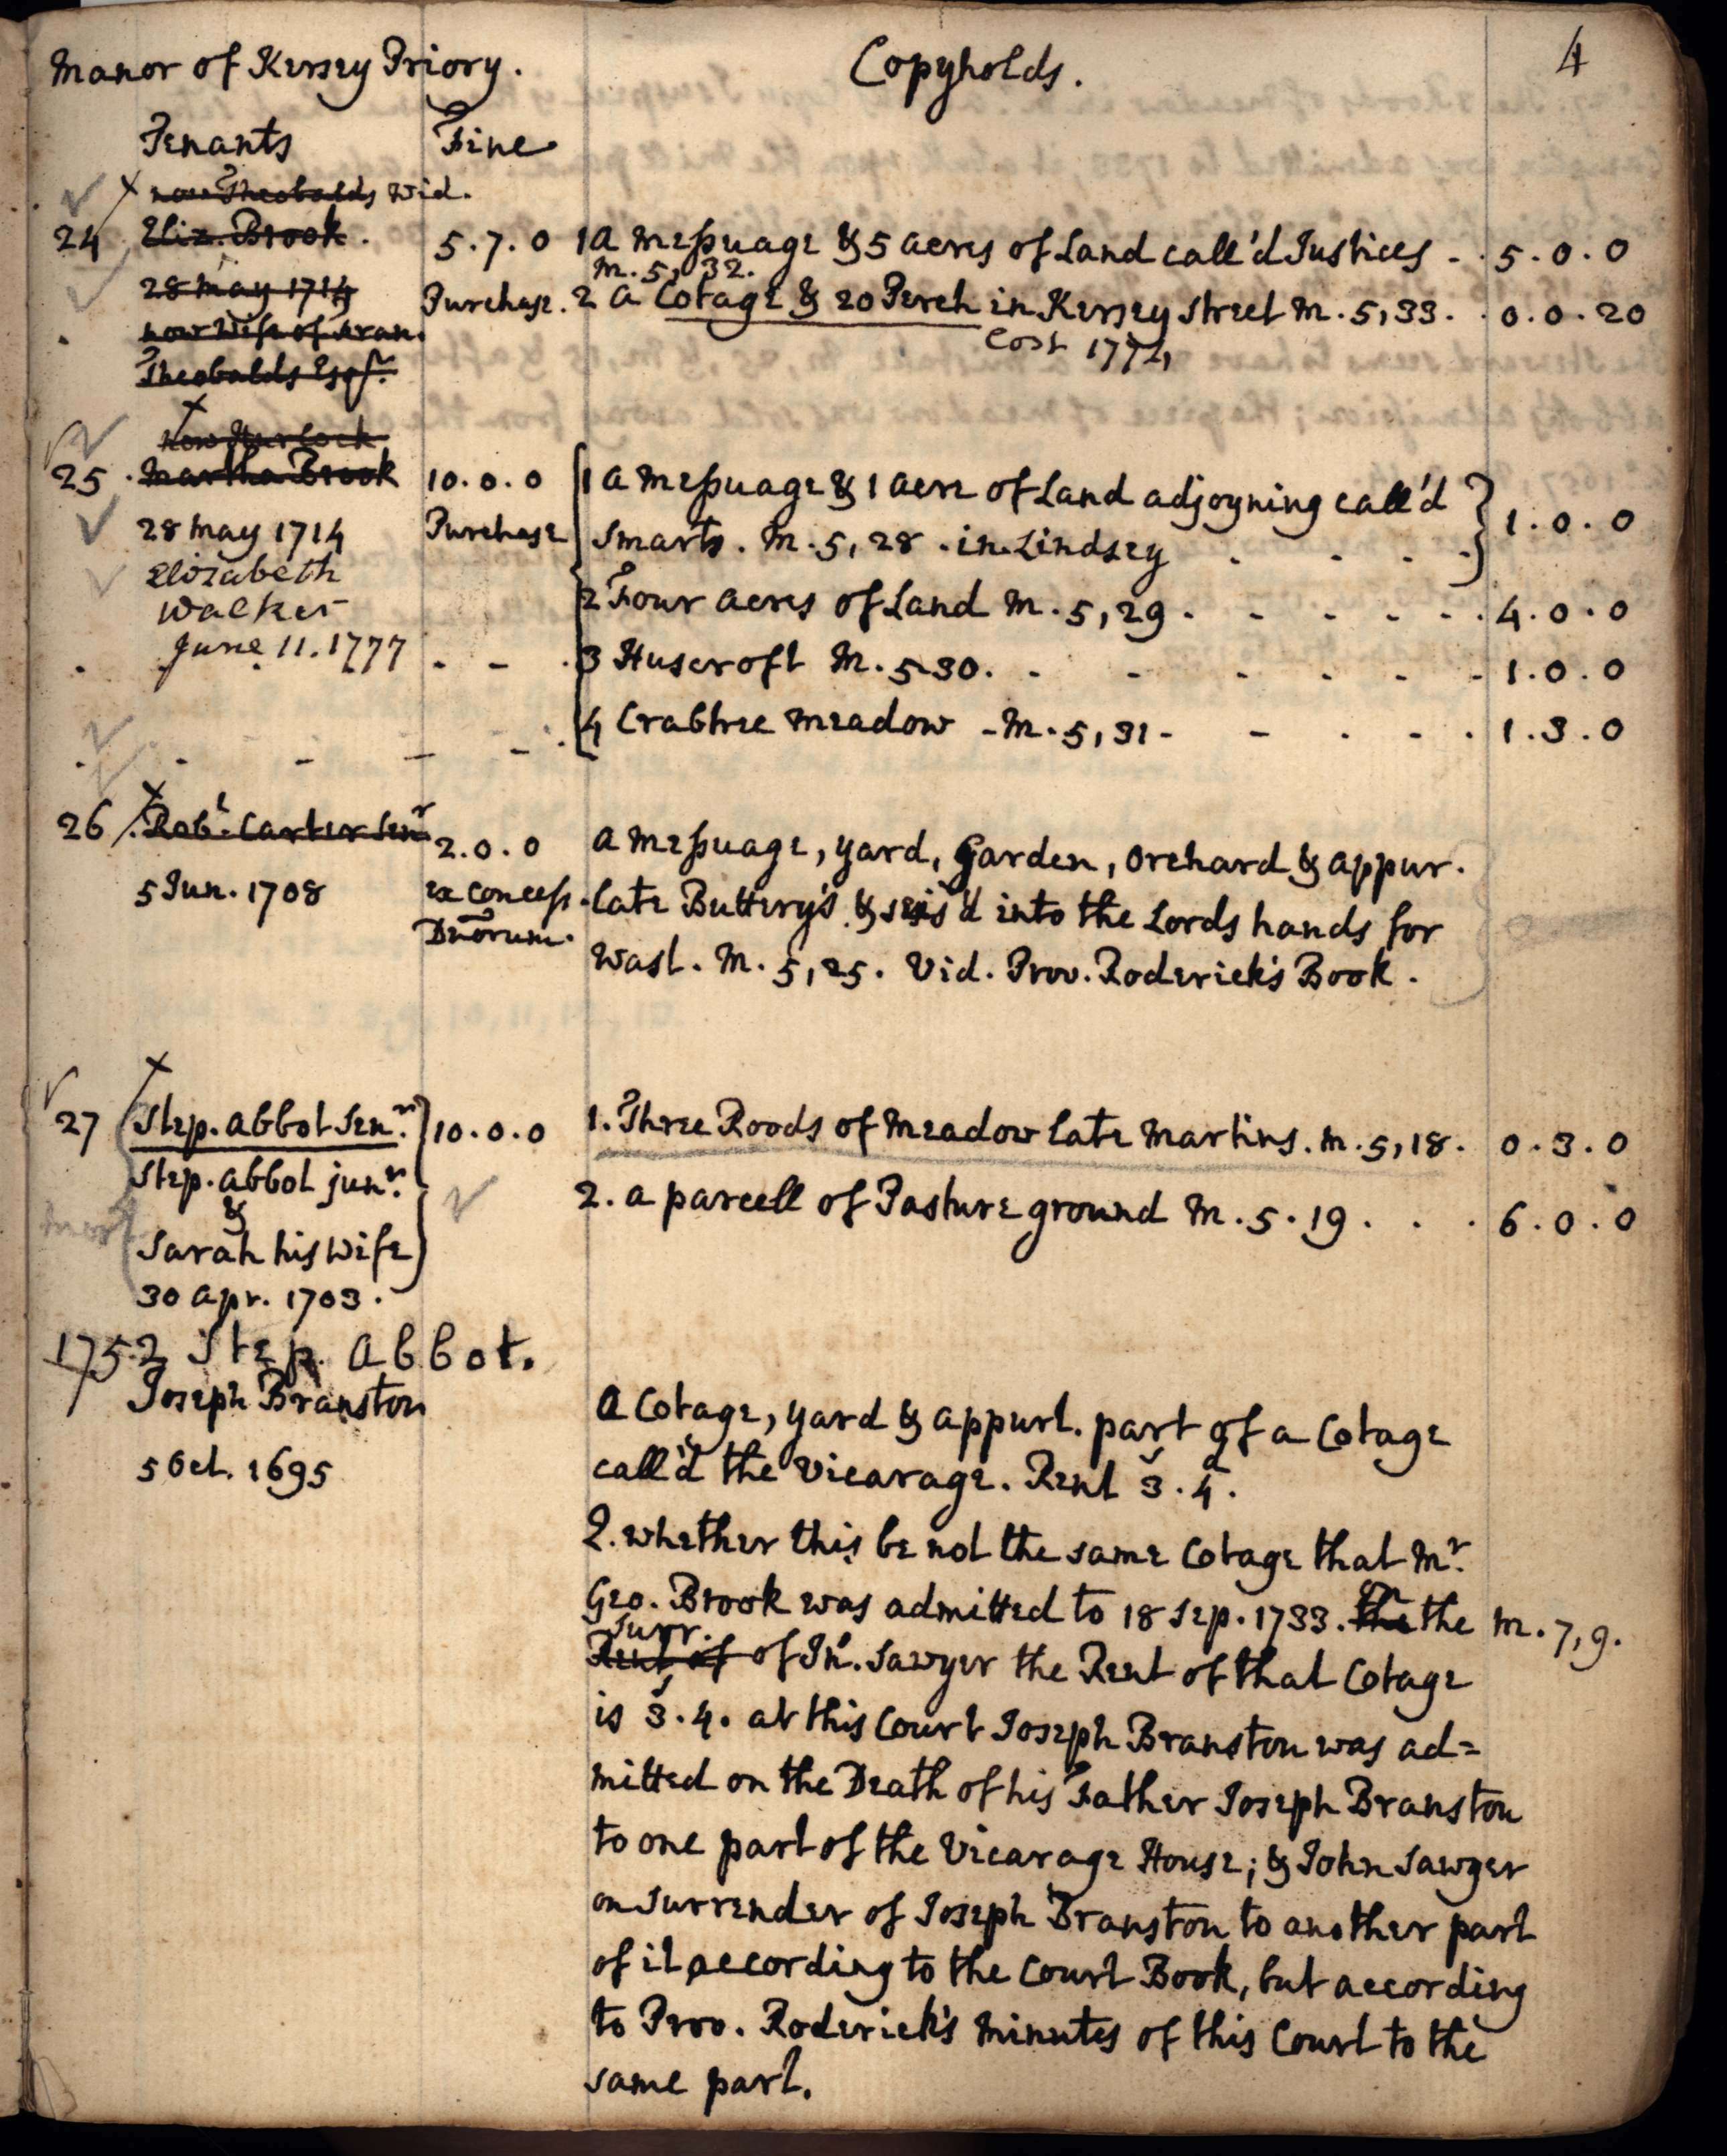 Manor of Kersey Priory. Copyholds. 4
Tenants Fine
now Theobalds Wid.
24 Eliz. Brook. 5.7.0 1 A Messuage & 5 Acres of Land call'd Justices - . 5.0.0
M. 5, 32.
28 May 1714 Purchase. 2 A Cotage & 20 Perch in Kersey Street M. 5, 33. . 0.0.20
now Wife of Fran. Cost 1772
Theobalds Esqr.
now Hurlock
25. Martha Brook 10.0.0 1 A Messuage & 1 Acre of Land adjoyning call'd
28 May 1714 Purchase Smarts. M. 5, 28. in Lindsey . . . . 1.0.0
Elizabeth
Walker 2 Four Acres of Land M. 5, 29. - - - - . 4.0.0
June 11. 1777 - - . 3 Huscroft M. 5 30. - - - - - - 1.0.0
. . - - - . 4 Crabtree Meadow - M. 5, 31 - - . - . 1.3.0
26. Robt. Carter Senr 2.0.0 A Messuage, yard, Garden, Orchard & appur.
5 Jun. 1708 ex concess. late Buttery's & seis'd into the Lords hands for
Dnorum. Wast. M. 5, 25. Vid. Prov. Roderick's Book.
27 Step. Abbot Senr. 10.0.0 1. Three Roods of Meadow late Martins. M. 5, 18. 0.3.0
Step. Abbot junr. 2. A parcell of Pasture ground M. 5. 19. . . . 6.0.0
&
mort
Sarah his Wife
30 Apr. 1703.
1752 Step. Abbot.
Joseph Branston A Cotage, yard & appurt. part of a Cotage
5 Oct. 1695 call'd the Vicarage. Rent 3s. 4d.
Q. whether this be not the same Cotage that Mr.
Geo. Brook was admitted to 18 Sep. 1733. the the M. 7, 9.
Surr.
Rent of of Jno. Sawyer the Rent of that Cotage
is 3s. 4. at this Court Joseph Branston was ad=
mitted on the Death of his Father Joseph Branston
to one part of the Vicarage House; & John Sawyer
on Surrender of Joseph Branston to another part
of it according to the Court Book, but according
to Prov. Roderick's Minutes of this Court to the
same part.